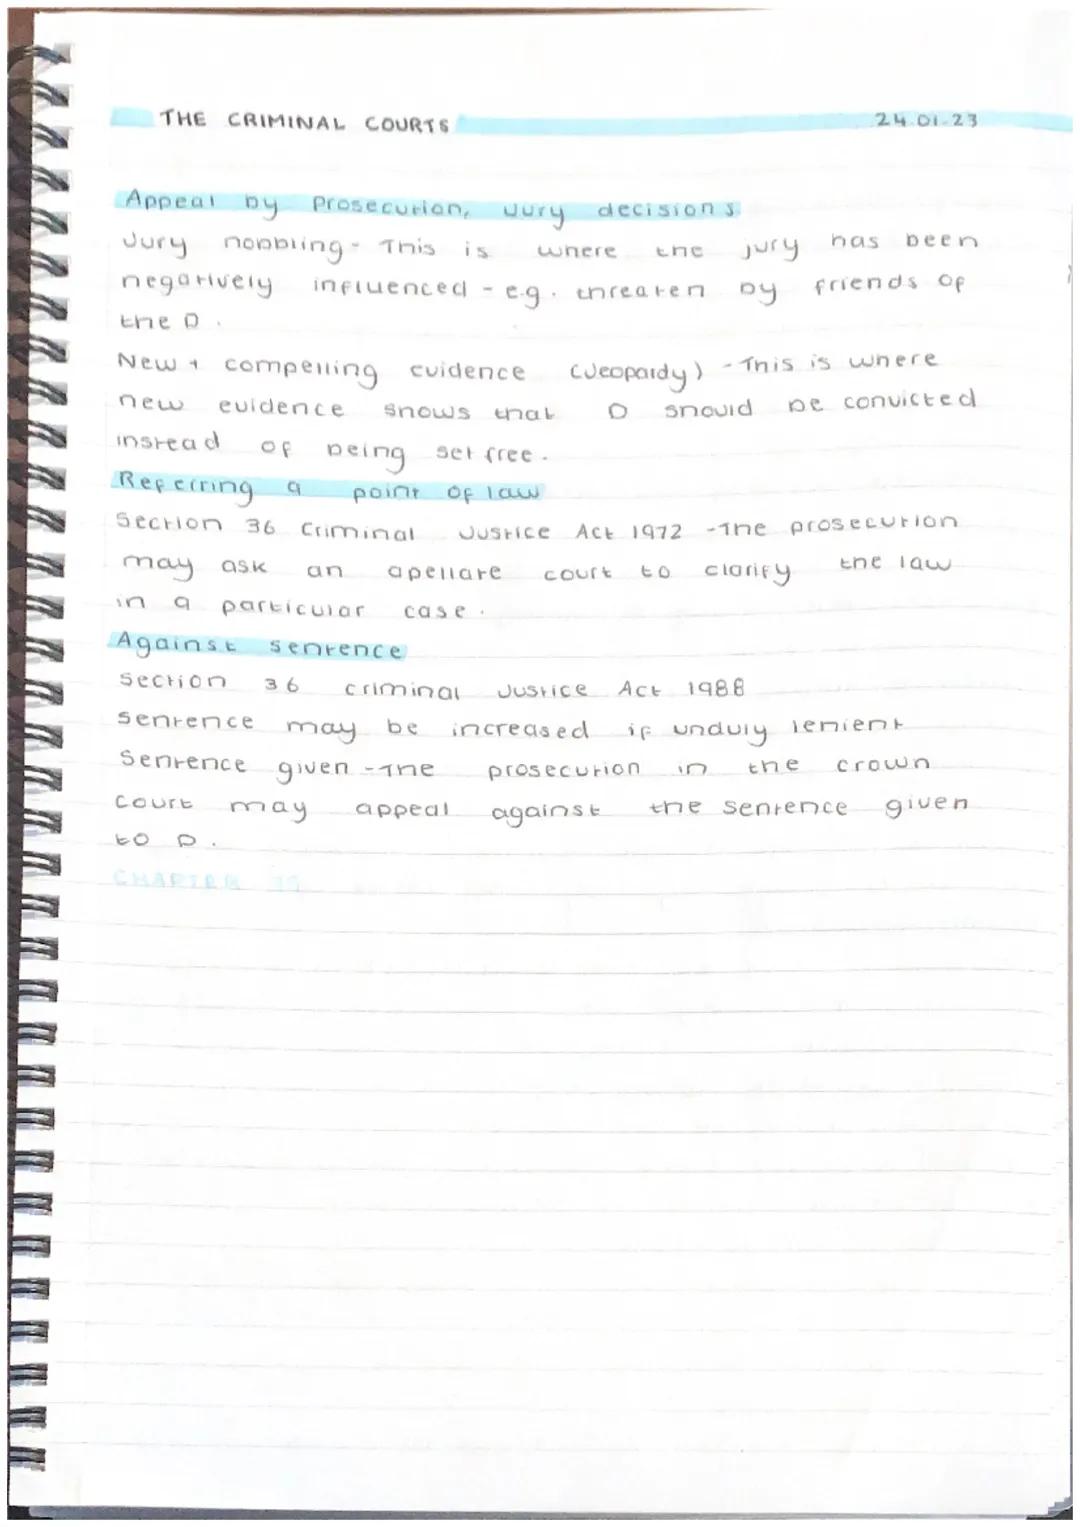 THE CRIMINAL COURTS 24.01.23
Appeal by Prosecution, Jury decisions.
Jury nobbling - This is where the jury has been
negatively influenced - e.g. threaten by friends of
the D.
New + compelling evidence (Jeopardy) - This is where
new evidence shows that D should be convicted
instead of being set free.
Referring a point of law
Section 36 Criminal Justice Act 1972 - The prosecution
may ask an apellate court to clarify the law
in a particular case.
Against sentence
Section 36 criminal Justice Act 1988
Sentence may be increased if unduly lenient
Sentence given - The prosecution in the crown
court may appeal against the sentence given
to D.
CHAPTER